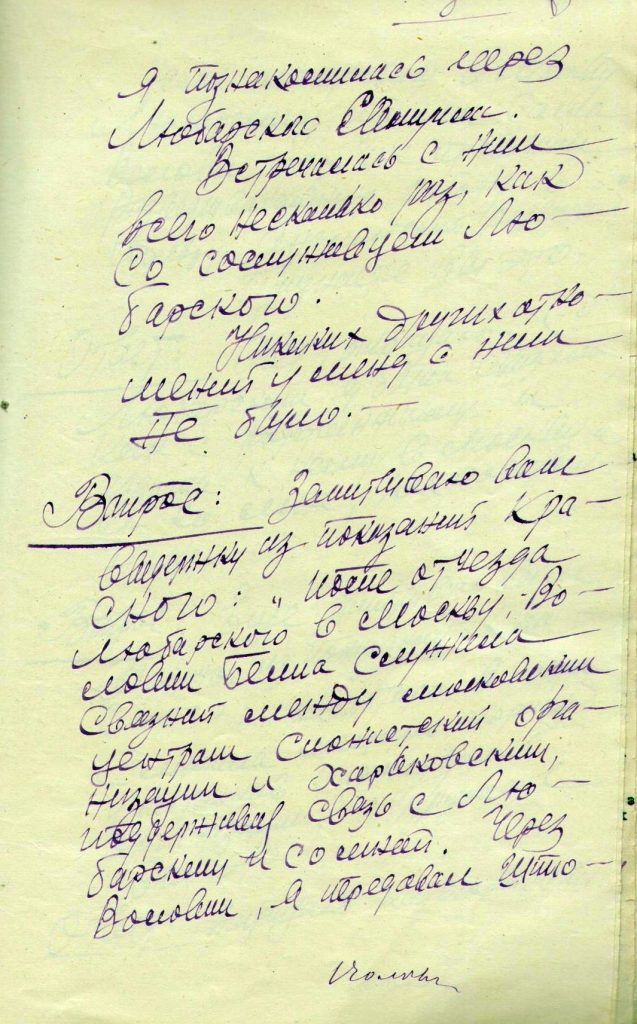 я познакомилась через
Любарского
Встречалась с ним
всего несколько раз, как
со сослуживцем Лю—
барского.
Никаких других отно—
шений у меня с ним
не было.—
Вопрос: Зачитываю вам
выдержку из показаний Кра—
сного: „после отъезда
Любарского в Москву, Во—
лович Белла служила
связной между московским
центром сионистской орга—
низации и харьковским,
поддерживая связь с Лю—
барским и со мной. Через
Волович, я передавал